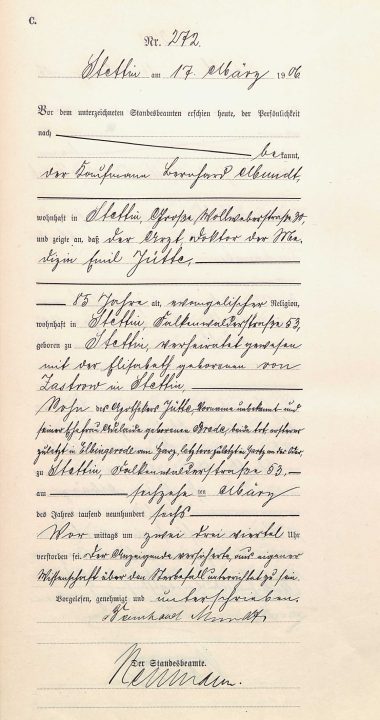 C.
Nr. 272.
Stettin am 17. März 1906
Vor dem unterzeichneten Standesbeamten erschien heute, der Persönlichkeit
nach
bekannt,
der Kaufmann Bernhard Mundt,
wohnhaft in Stettin, Große Wollweberstraße
und zeigte an, daß der Arzt, Doktor der Me-
dizin Emil Jütte,
85 Jahre alt, evangelischer Religion,
wohnhaft in Stettin, Falkenwalderstraße 53,
geboren zu Stettin, verheiratet gewesen
mit der Elisabeth geborenen von
Zastrow in Stettin,
Sohn des Apothekers Jütte, Vorname unbekannt und
seiner Ehefrau Adelaide geborenen Brede, beide tot, ersterer
zuletzt in Elbingerode am Harz, letztere zuletzt in Gartz an der Oder,
zu Stettin, Falkenwalderstraße 53,
am sechzehnten März
des Jahres tausend neunhundert sechs
Vor mittags um zwei drei viertel Uhr
verstorben sei. Der Anzeigende versicherte, aus eigener
Wissenschaft über den Sterbefall unterrichtet zu sein.
Vorgelesen, genehmigt und unterschrieben.
Bernhard Mundt
Der Standesbeamte.